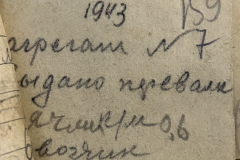 1943
159
агрегат N 7
Выдано перевалк
ячмік/м 0,6
возчик